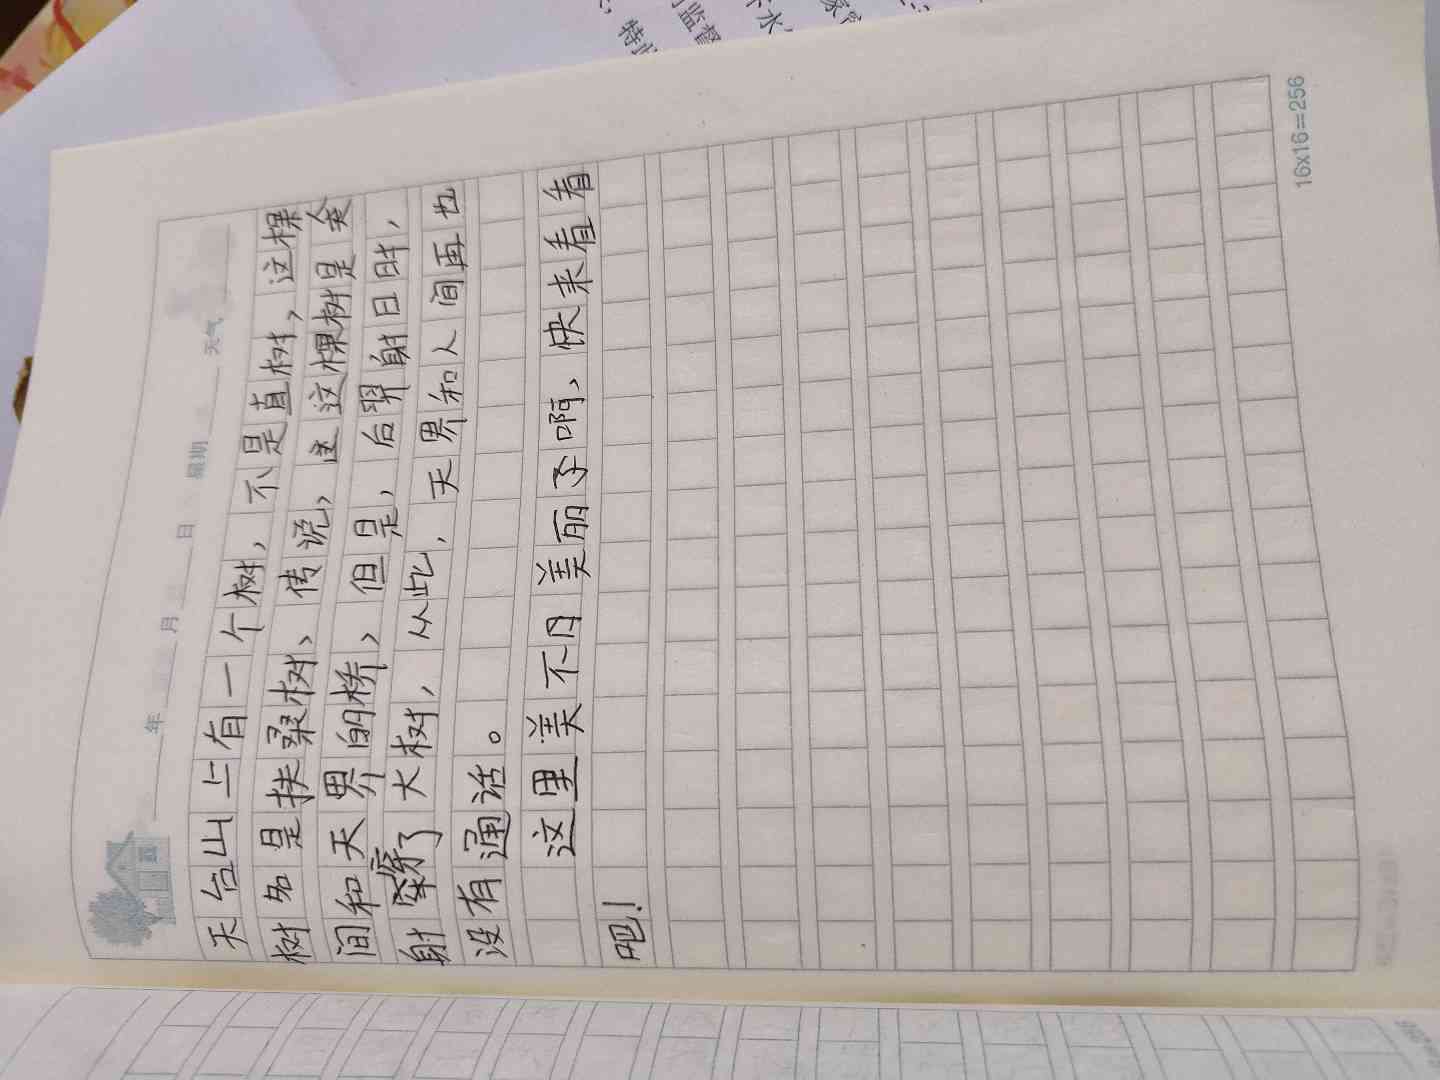 年 月 日 星期 天气
天台山上有一个树，不是直树，这棵
树名是扶桑树、传说、这棵树是
间和天界的桥，但是，后羿射日时，
射穿了大树，从此，天界和人间再也
没有通话。
这里美不日美丽子啊，快来看看
吧！
16x16=256